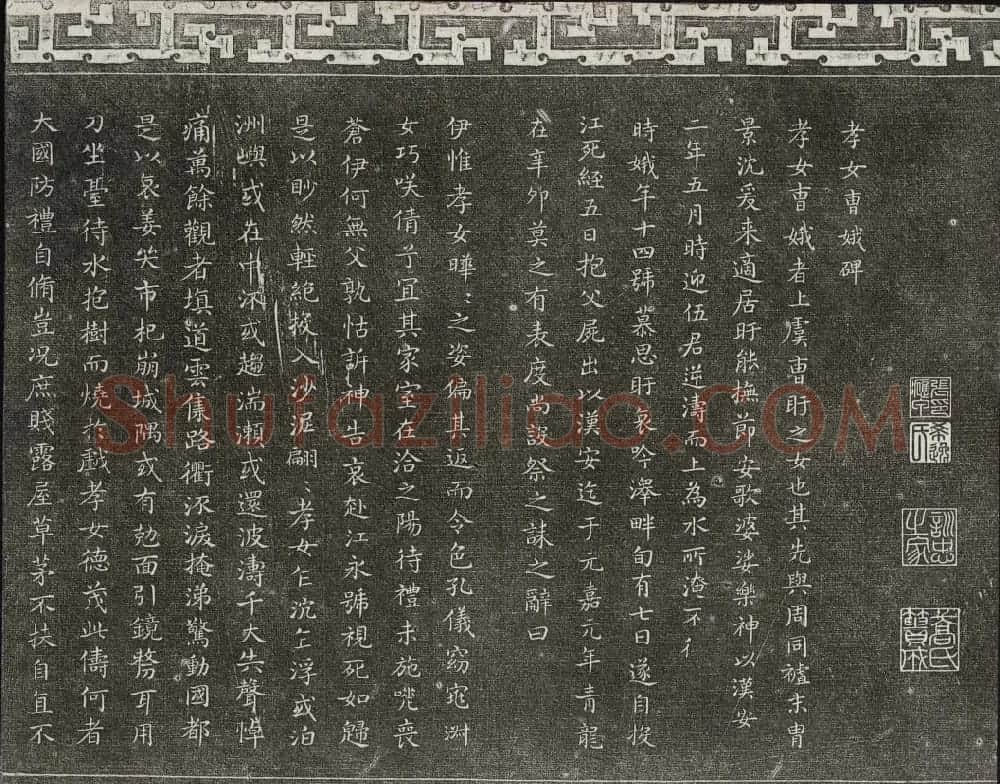 孝女曹娥碑
孝女曹娥者上虞曹盱之女也其先與周同禇末冑
景沈爰来適居盱能撫節安歌婆娑樂神以漢安
二年五月時迎伍君逆濤而上為水所淹不
時娥年十四號慕思盱哀吟澤畔旬有七日遂自投
江死經五日抱父屍出以漢安迄于元嘉元年青龍
在辛卯莫之有表度尚設祭之誄之辭曰
伊惟孝女曄〻之姿偏其返而令色孔儀窈窕淑
女巧咲倩兮宜其家室在洽之陽待禮未施嗟喪
蒼伊何無父孰怙訴神告哀赴江永號視死如歸
是以眇然輕絶投入沙泥翩〻孝女乍沈乍浮或泊
洲嶼或在中流或趨湍瀬或還波濤千夫失聲悼
痛萬餘觀者填道雲集路衢泝淚掩涕驚動國都
是以哀姜哭市杞崩城隅或有勀面引鏡剺耳用
刀坐臺待水抱樹而燒於戲孝女德茂此儔何者
大國防禮自脩豈况庶賤露屋草茅不扶自直不
訓忠之家
喬氏簣成
Shufaziliao.COM